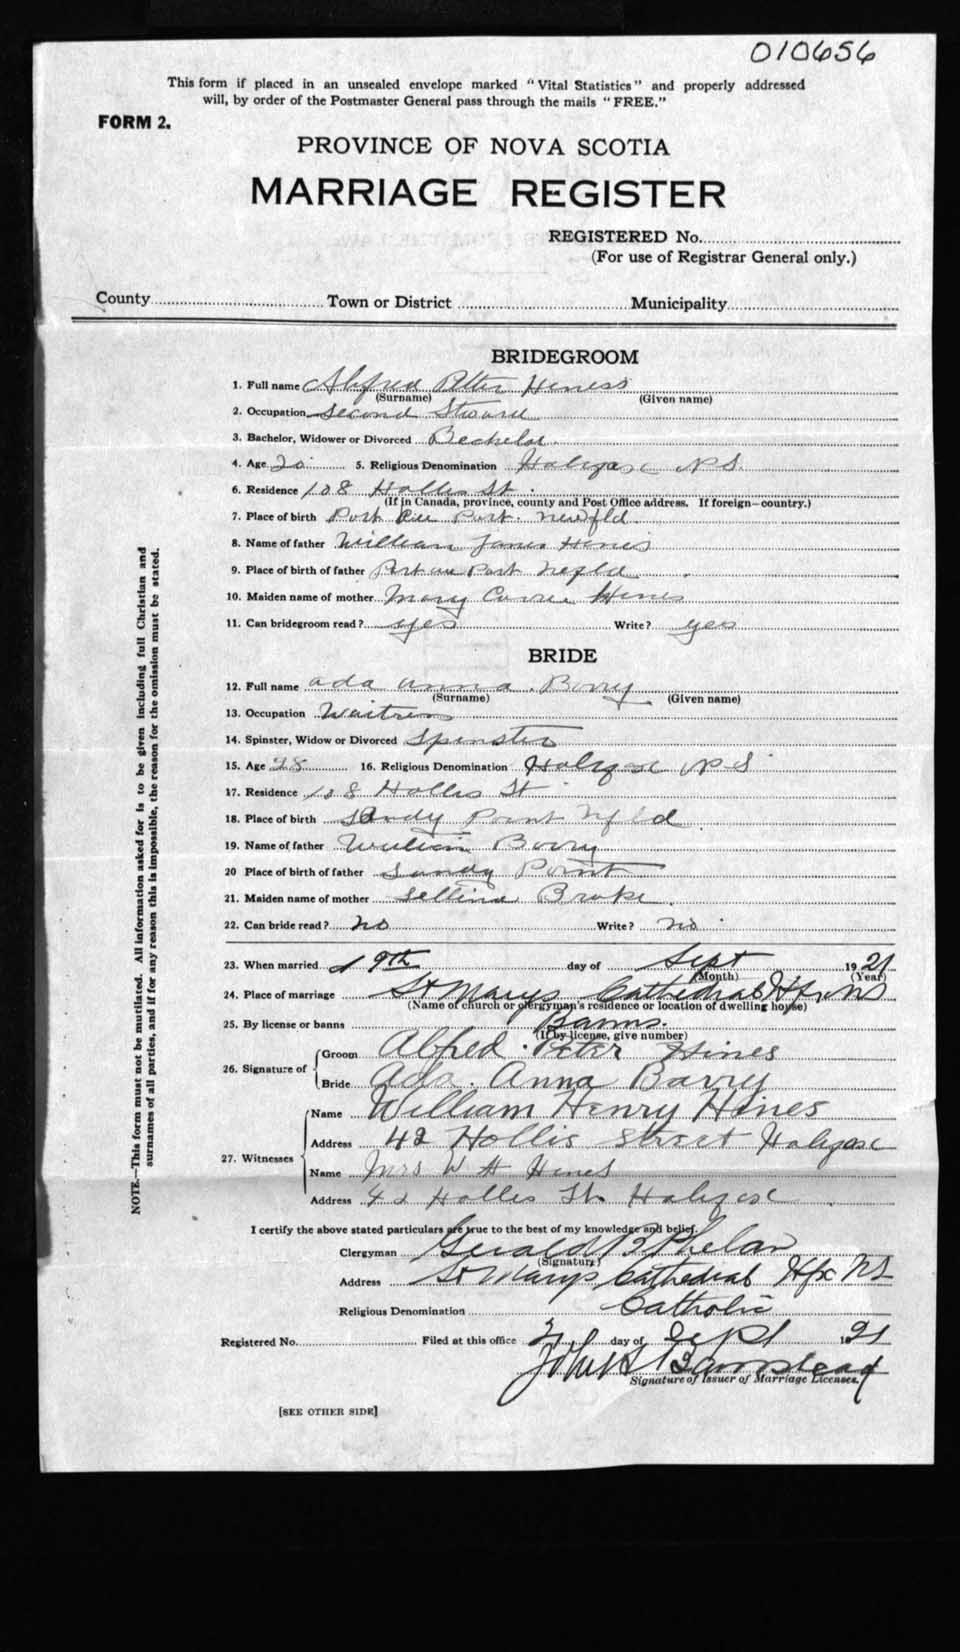 010656
This form if placed in an unsealed envelope marked "Vital Statistics" and properly addressed
will, by order of the Postmaster General pass through the mails "FREE."
FORM 2.
PROVINCE OF NOVA SCOTIA
MARRIAGE REGISTER
REGISTERED No.
(For use of Registrar General only.)
County Town or District Municipality
BRIDEGROOM
1. Full name Alfred Peter Hiness
(Surname) (Given name)
2. Occupation Second
3. Bachelor, Widower or Divorced Bechelor.
4. Age 20 5. Religious Denomination Halifase N.S.
6. Residence 108 Hollis St.
(If in Canada, province, county and Post Office address. If foreign—country.)
7. Place of birth Port Port. Newfld.
8. Name of father William James Hines
9. Place of birth of father Port au Port Nefld
10. Maiden name of mother Mary Hines
11. Can bridegroom read? yes Write? yes
BRIDE
12. Full name ada anna. Barry
(Surname) (Given name)
13. Occupation Waitress
14. Spinster, Widow or Divorced Spinster
15. Age 28 16. Religious Denomination Halifase N S
17. Residence 108 Hollis St
18. Place of birth Sandy Point Nfld
19. Name of father William Barry
20 Place of birth of father Sandy Point
21. Maiden name of mother Sellina Brake.
22. Can bride read? No Write? No
23. When married 19th day of Sept 1921
(Month) (Year)
24. Place of marriage St Marys Cathedral Hfx NS
(Name of church or clergyman's residence or location of dwelling house)
25. By license or banns Banns.
(If by license, give number)
26. Signature of Groom Alfred. Peter Hines
Bride Ada. Anna Barry
27. Witnesses Name William Henry Hines
Address 42 Hollis Street Halifase
Name Mrs W H Hines
Address 42 Hollis St. Halifase
I certify the above stated particulars are true to the best of my knowledge and belief.
Clergyman Gerald B Phelan
(Signature)
Address St Marys Cathedral Hfx NS
Religious Denomination Catholic
Registered No. Filed at this office 21 day of Sept 1921
John Barnstead
Signature of Issuer of Marriage Licenses.
[SEE OTHER SIDE]
NOTE.—This form must not be mutilated. All information asked for is to be given including full Christian and
surnames of all parties, and if for any reason this is impossible, the reason for the omission must be stated.